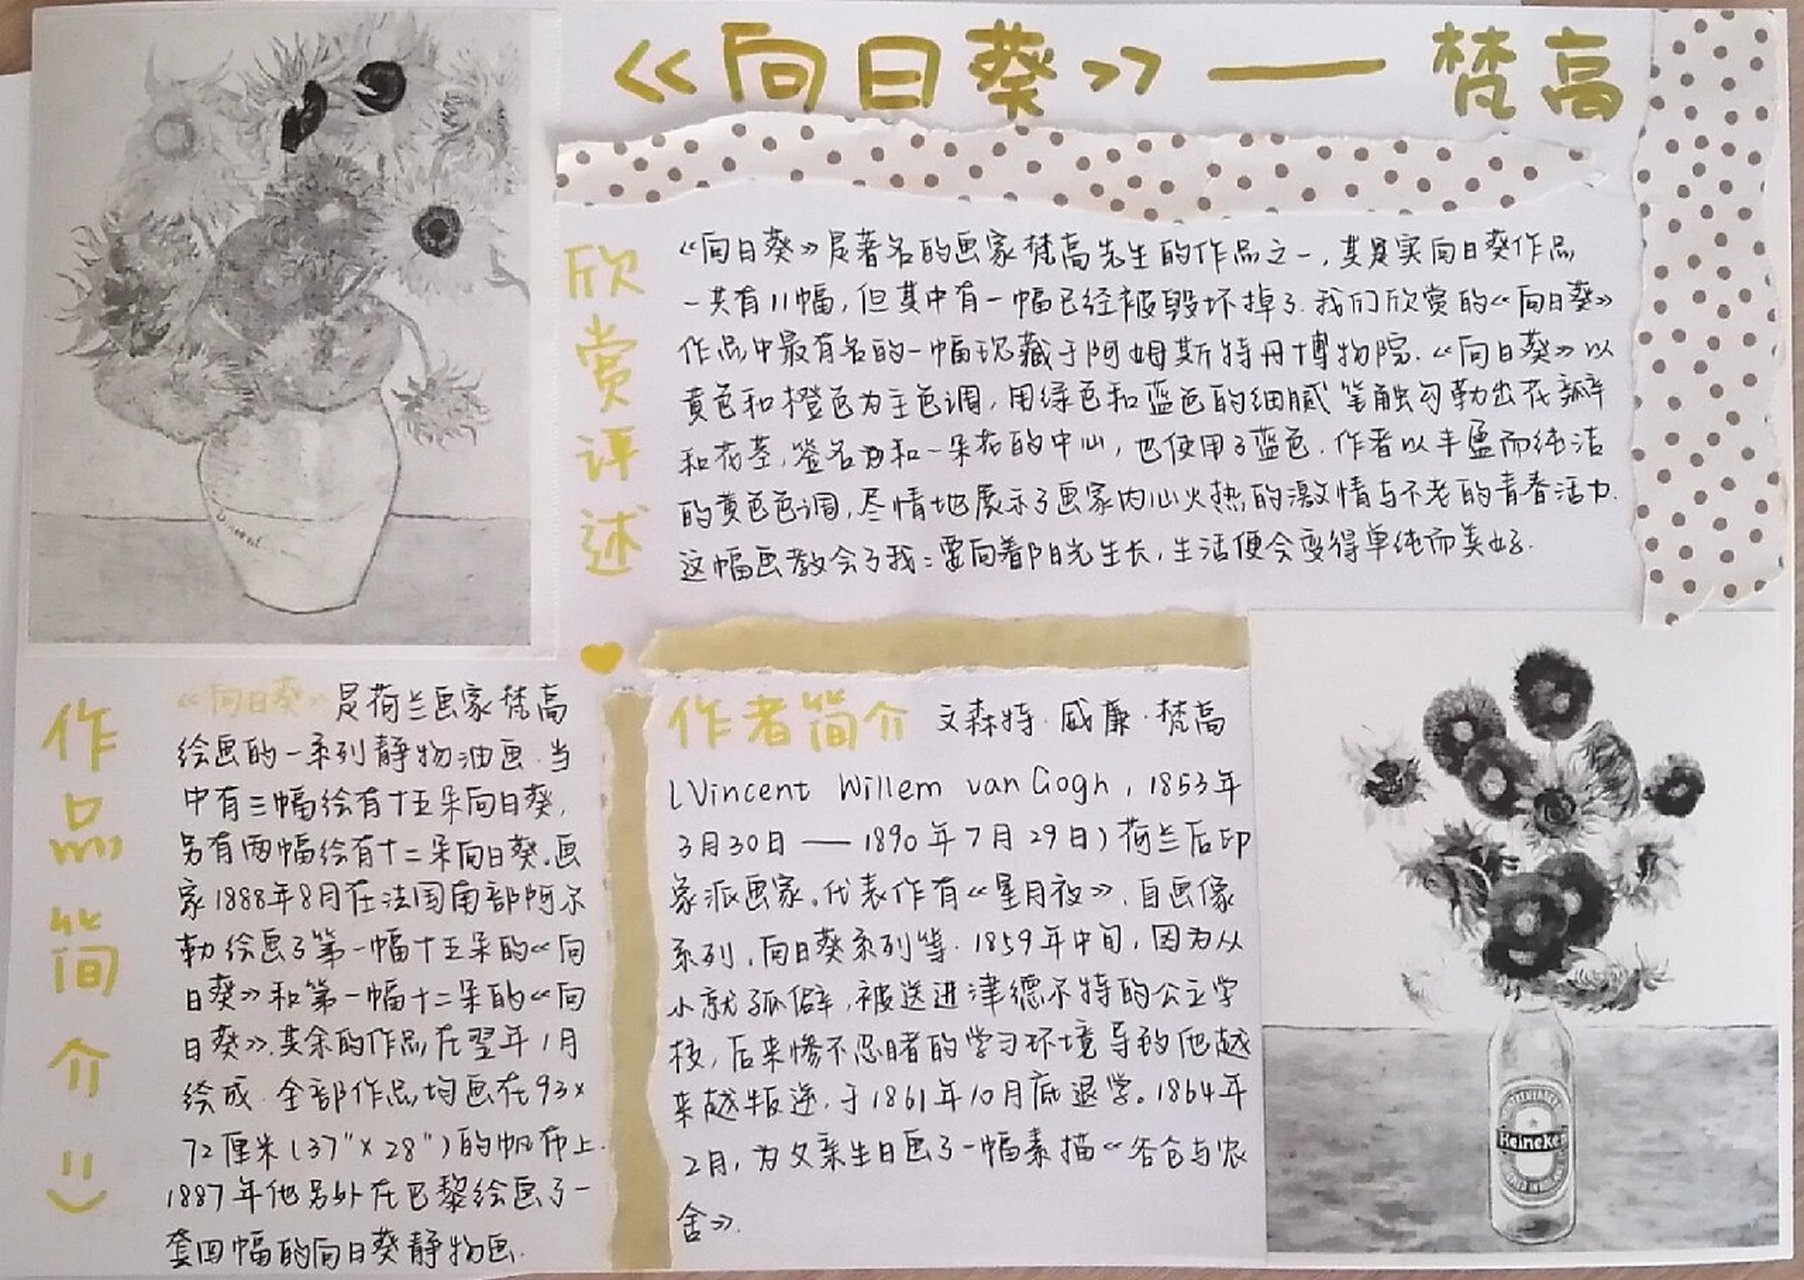 《向日葵》——梵高
欣赏评述
《向日葵》是著名的画家梵高先生的作品之一,其是实向日葵作品
一共有11幅,但其中有一幅已经被毁坏掉了.我们欣赏的《向日葵》
作品中最有名的一幅现藏于阿姆斯特丹博物院.《向日葵》以
黄色和橙色为主色调,用绿色和蓝色的细腻笔触勾勒出花瓣
和花茎,签名为和一朵花的中心,也使用了蓝色.作者以丰盈而纯洁
的黄色色调,尽情地展示了画家内心火热的激情与不老的青春活力.
这幅画教会了我:要向着阳光生长,生活便会变得单纯而美好.
Vincent
作品简介
《向日葵》是荷兰画家梵高
绘画的一系列静物油画.当
中有三幅绘有十五朵向日葵,
另有两幅绘有十二朵向日葵.画
家1888年8月在法国南部阿尔
勒绘画了第一幅十五朵的《向
日葵》和第一幅十二朵的《向
日葵》.其余的作品在翌年1月
绘成.全部作品均画在93×
72厘米(37"×28")的帆布上.
1887年他另外在巴黎绘画了一
套四幅的向日葵静物画.
作者简介 文森特·威廉·梵高
(Vincent Willem van Gogh,1853年
3月30日——1890年7月29日)荷兰后印
象派画家.代表作有《星月夜》、自画像
系列、向日葵系列等.1859年中旬,因为从
小就孤僻,被送进津德尔特的公立学
校,后来惨不忍睹的学习环境导致他越
来越叛逆,于1861年10月底退学。1864年
2月,为父亲生日画了一幅素描《谷仓与农
舍》.
Heineken